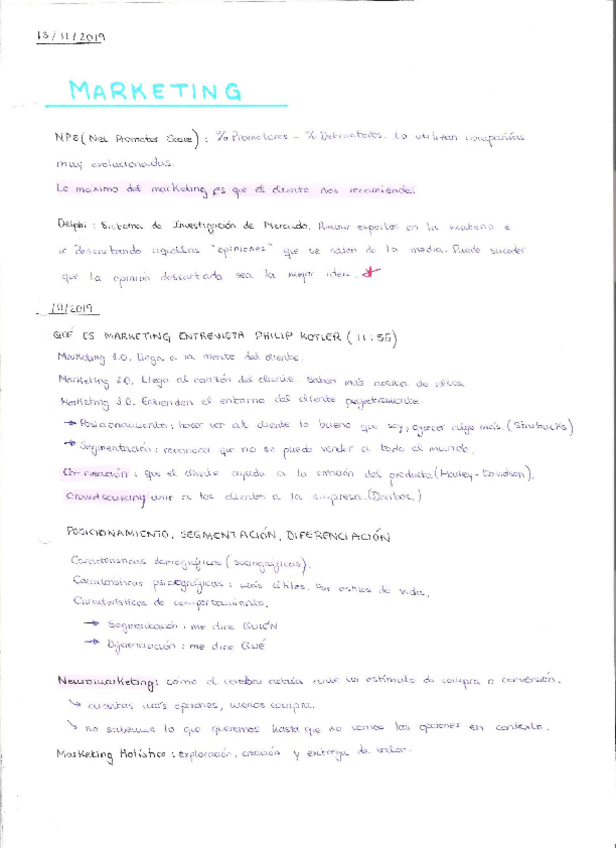 13/11/2019
MARKETING
NPS (Net Promoter Score): % Promotores - % Detractores. Lo utilizan compañías
muy evolucionadas.
Lo máximo del marketing es que el cliente nos recomiende.
Delphi: Sistema de Investigación de Mercado. Reunir expertos en la materia e
ir descartando aquellas "opiniones" que se salen de la media. Puede suceder
que la opinión descartada sea la mejor idea.
/11/2019
QUÉ ES MARKETING ENTREVISTA PHILIP KOTLER (11:55)
Marketing 1.0. Llega a la mente del cliente.
Marketing 2.0. Llega al corazón del cliente. Saben más acerca de ellos
Marketing 3.0. Entienden el entorno del cliente perfectamente
→ Posicionamiento: hacer ver al cliente lo bueno que soy, ofrecer algo más. (Starbucks)
→ Segmentación: reconocer que no se puede vender a todo el mundo.
Co-creación: que el cliente ayude a la creación del producto (Harley-Davidson).
Crowdsourcing unir a los clientes a la empresa. (Doritos.)
POSICIONAMIENTO, SEGMENTACIÓN, DIFERENCIACIÓN
Características demográficas
Características psicográficas: más útiles. Por estilos de vida.
Características de comportamiento.
→ Segmentación: me dice QUIÉN
→ Diferenciación: me dice QUÉ
Neuromarketing: como el cerebro actúa ante un estímulo de compra o conversión.
↳ cuantas más opciones, menos compra.
↳ no sabemos lo que queremos hasta que no vemos las opciones en contexto.
Marketing Holístico: exploración, creación y entrega de valor.